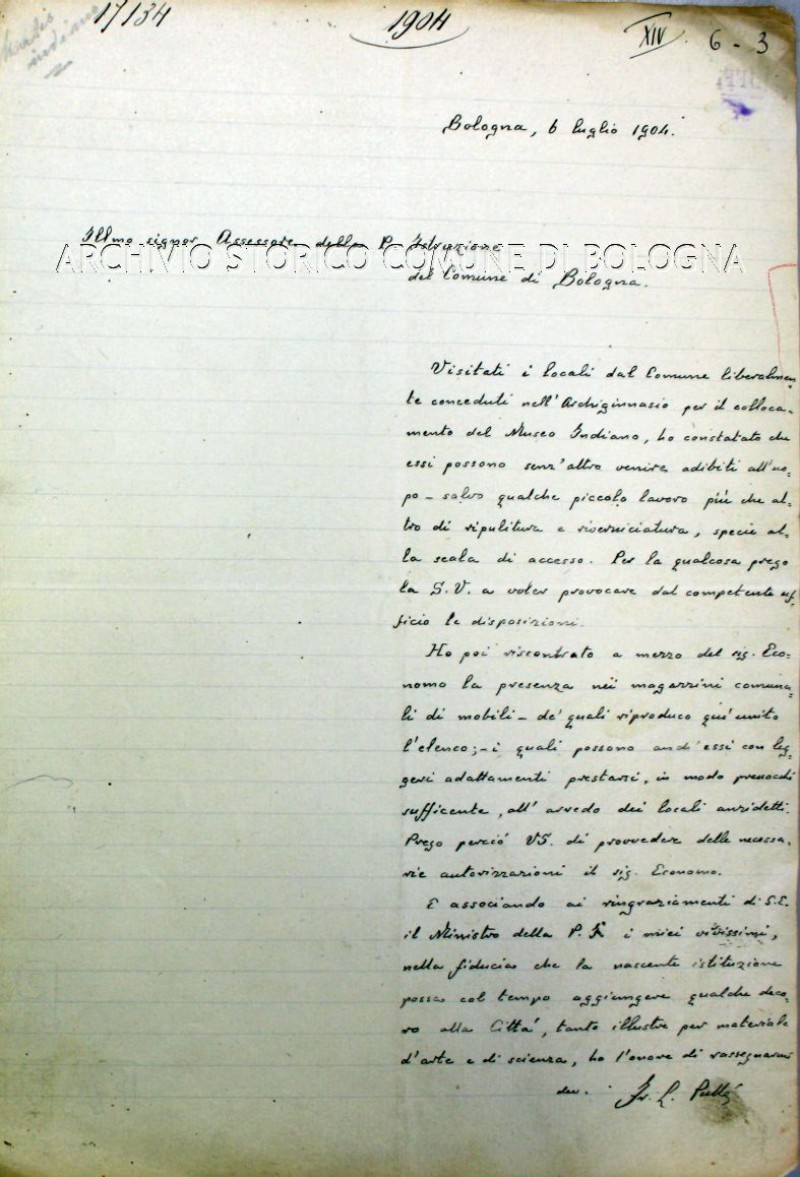 17134
1904
XIV
6 - 3
Bologna, 6 luglio 1904.
Illmo signor Assessore della P. Istruzione
ARCHIVIO STORICO COMUNE DI BOLOGNA
del Comune di Bologna.
Visitati i locali dal Comune liberalmen-
te conceduti nell'Archiginnasio per il colloca-
mento del Museo Indiano, ho constatato che
essi possono senz'altro venire adibiti all'uo-
po - salvo qualche piccolo lavoro più che al-
tro di ripulitura e riverniciatura, specie al-
la scala di accesso. Per la qualcosa prego
la S.V. a voler provocare dal competente uf-
ficio le disposizioni.
Ho poi riscontrato a mezzo del sig. Eco-
nomo la presenza nei magazzini comuna-
li di mobili - de' quali riproduco qui unito
l'elenco; - i quali possono anch'essi con leg-
geri adattamenti prestarsi, in modo
sufficente, all'arredo dei locali anzidetti.
Prego perciò VS. di provvedere delle necessa-
rie autorizzazioni il sig. Economo.
E associando ai ringraziamenti di S.E.
il Ministro della P. I. i miei vivissimi,
nella fiducia che la nascente istituzione
possa col tempo aggiungere qualche deco-
ro alla Città, tanto illustre per materiale
d'arte e di scienza, ho l'onore di rassegnarmi
dev. Fr. L. Pullé